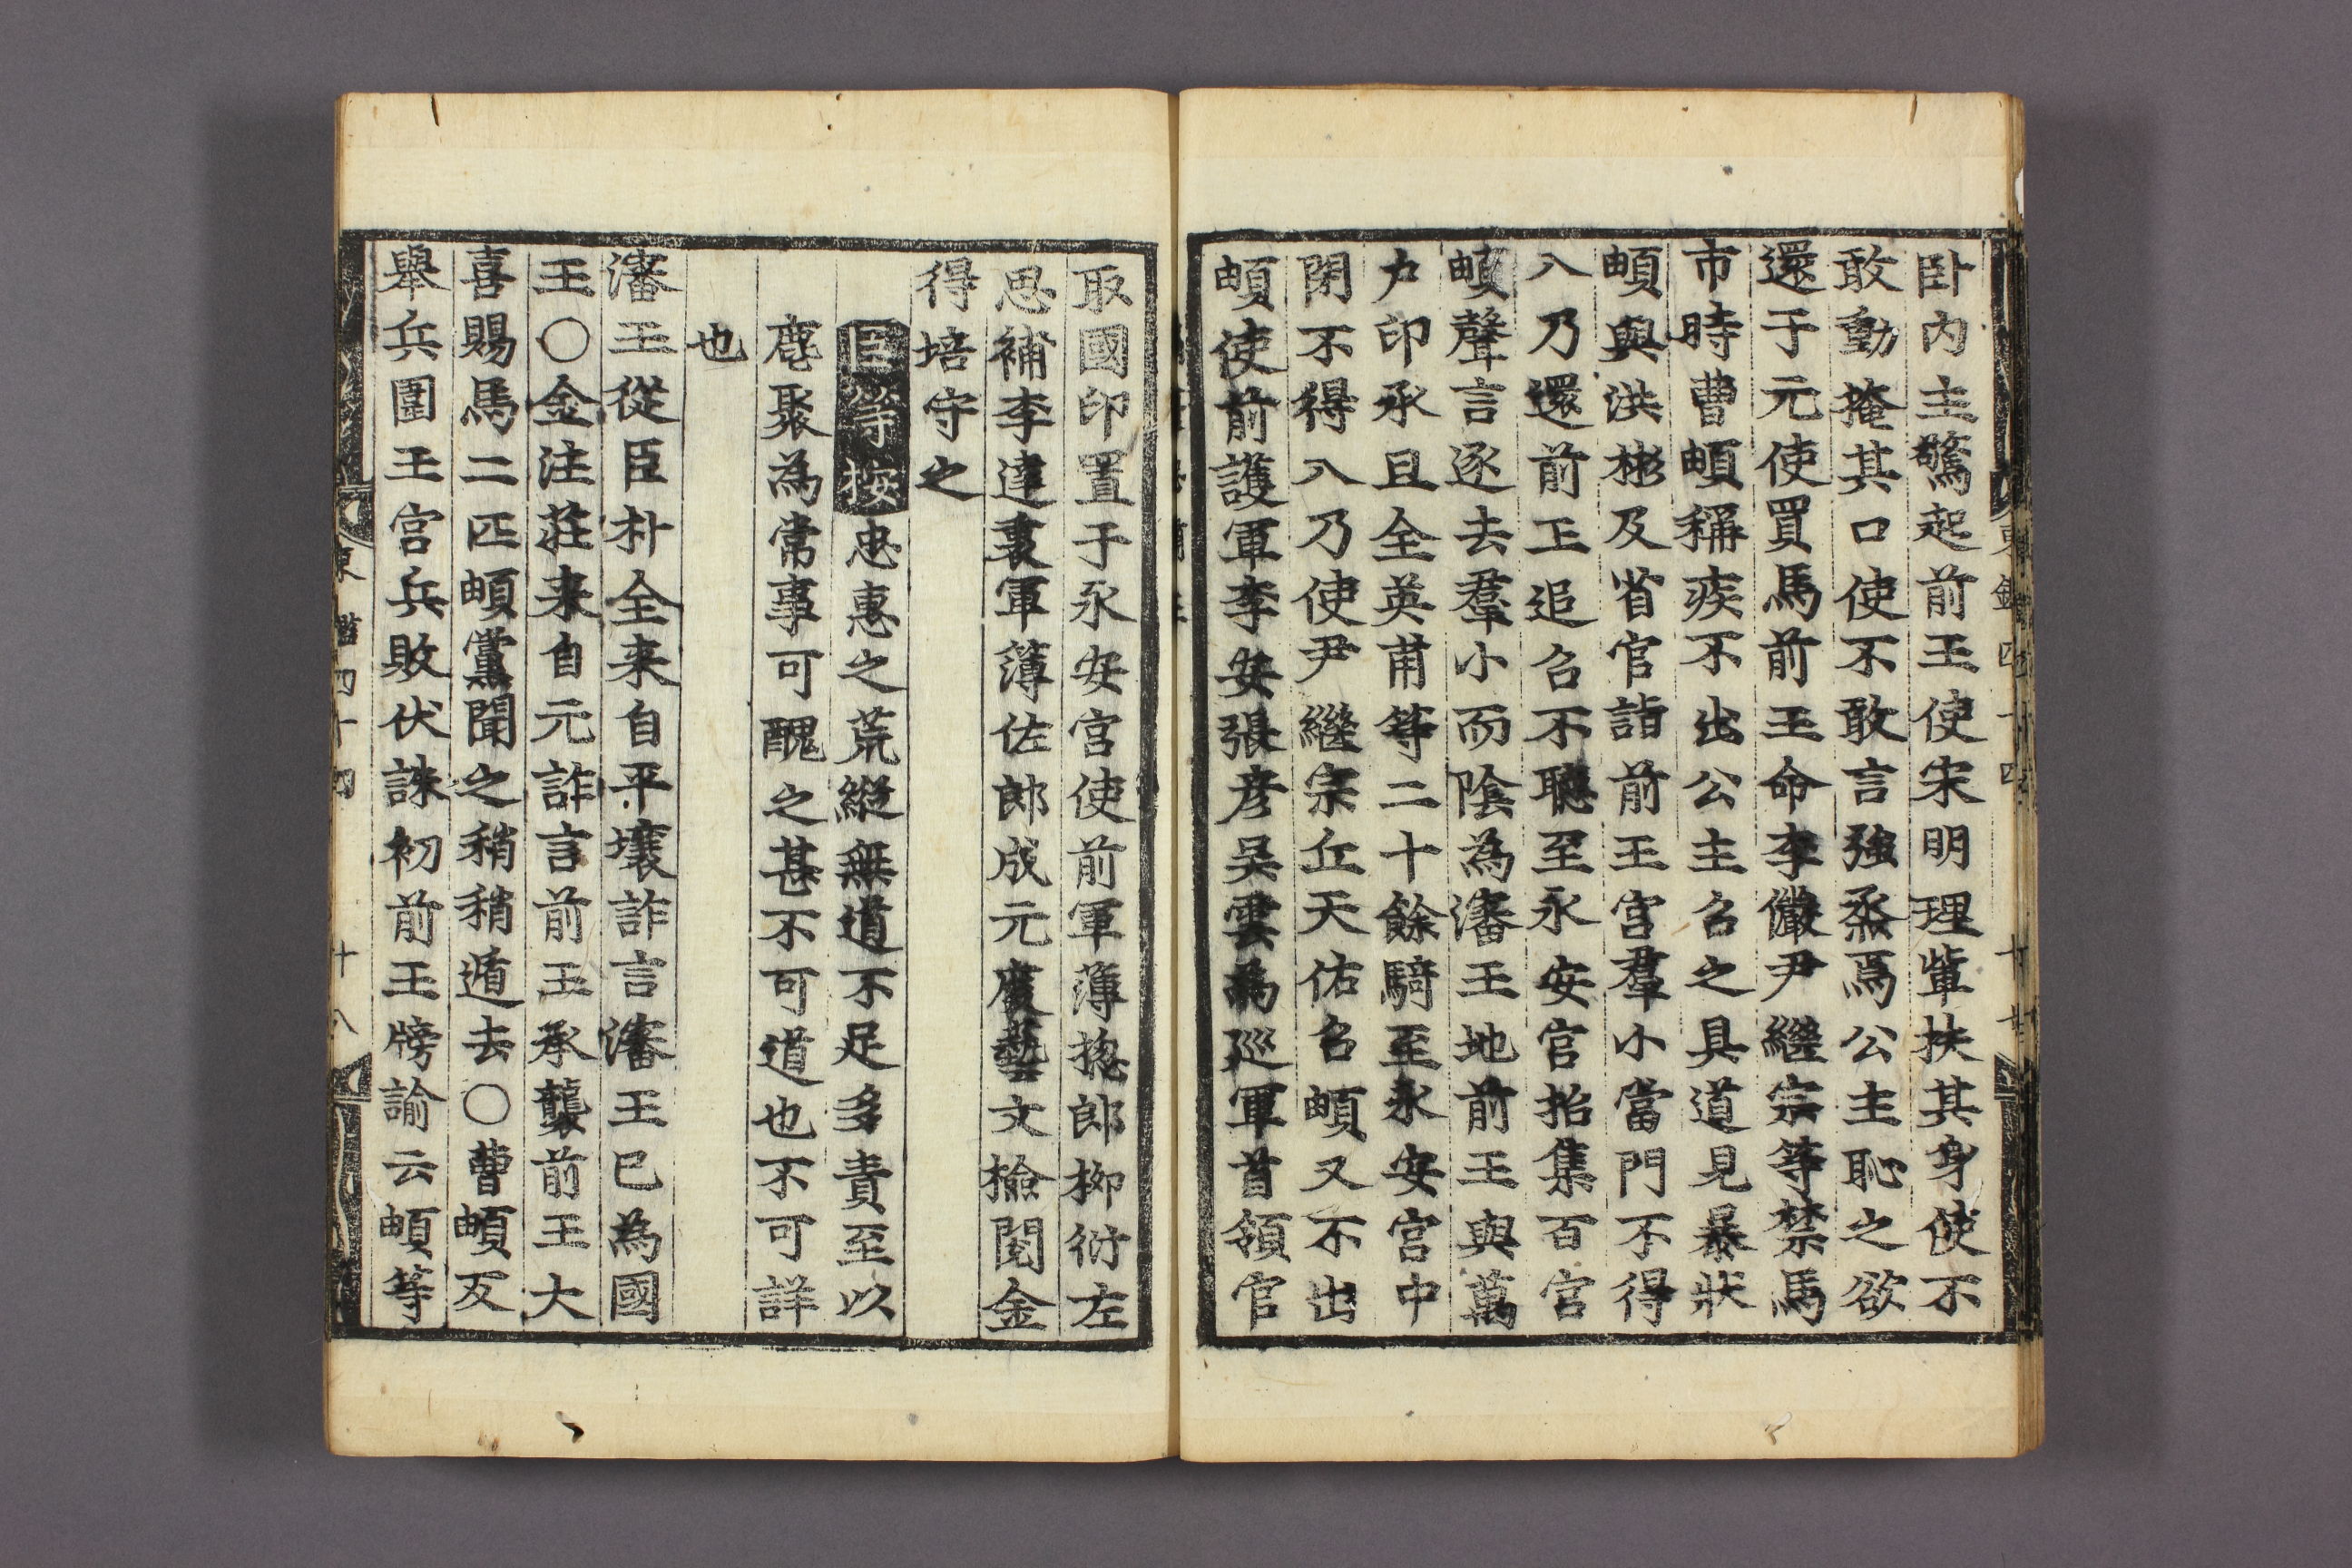 卧內主驚起前王使宋明理軰扶其身使不
敢動掩其口使不敢言強烝焉公主恥之欲
還于元使買馬前王命李儼尹繼宗等禁馬
市時曹頔稱疾不出公主召之具道見暴狀
頔與洪彬及省官詣前王宮羣小當門不得
入乃還前王追召不聽至永安宮招集百官
頔聲言逐去羣小而陰為瀋王地前王與萬
户印承旦全英甫等二十餘騎至永安宮中
閉不得入乃使尹繼宗丘天佑召頔又不出
頔使前護軍李安張彦吴雲為巡軍首領官
取國印置于永安宮使前軍簿摠郎柳衍左
思補李達衷軍簿佐郎成元度藝文檢閱金
得培守之
臣等按忠惠之荒縱無道不足多責至以
麀聚為常事可醜之甚不可道也不可詳
也
瀋王從臣朴全来自平壤詐言瀋王已為國
王〇金注莊来自元詐言前王承襲前王大
喜賜馬二匹頔黨聞之稍稍遁去〇曹頔反
舉兵圍王宮兵敗伏誅初前王牓諭云頔等
東鑑四十四 十八